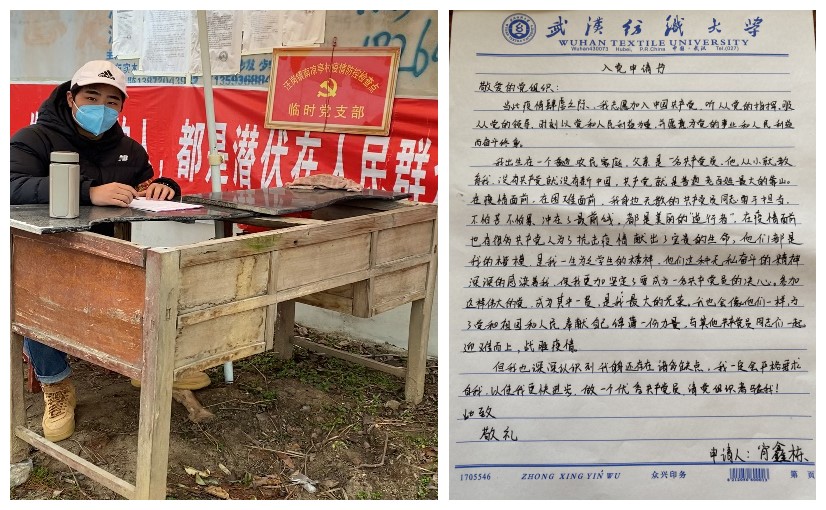 汪岗镇
疫情防控检查点
临时党支部
人,都是潜伏在人民群
武汉纺织大学
WUHAN TEXTILE UNIVERSITY
Wuhan430073 Hubei, P.R.China Tel:(027)
中国·武汉
入党申请书
敬爱的党组织:
当此疫情肆虐之际,我志愿加入中国共产党,听从党的指挥,服
从党的领导,时刻以党和人民利益为重,并愿意为党的事业和人民利益
而奋斗终身。
我出生在一个普通农民家庭,父亲是一名共产党员,他从小就教
育我,没有共产党就没有新中国,共产党就是普通老百姓最大的靠山。
在疫情面前,在困难面前,我身边无数的共产党员同志勇于担当,
不怕苦不怕累,冲在了最前线,都是美丽的“逆行者”。在疫情面前
也有很多共产党人为了抗击疫情献出了宝贵的生命,他们都是
我的榜样,是我一生为之学习的楷模,他们这种无私奋斗的精神
深深的感染着我,使我更加坚定了要成为一名共产党员的决心。参加
这样伟大的党,成为其中一员,是我最大的光荣。我也会像他们一样,为
了党和祖国和人民奉献自己绵薄一份力量,与其他共产党员同志们一起
迎难而上,战胜疫情。
但我也深深认识到我自身还存在许多缺点,我一定会严格要求
自我,以使我更快进步,做一个优秀共产党员,请党组织考验我!
此致
敬礼
申请人:肖鑫栋
1705546 ZHONG XING YIN WU 众兴印务 第 页